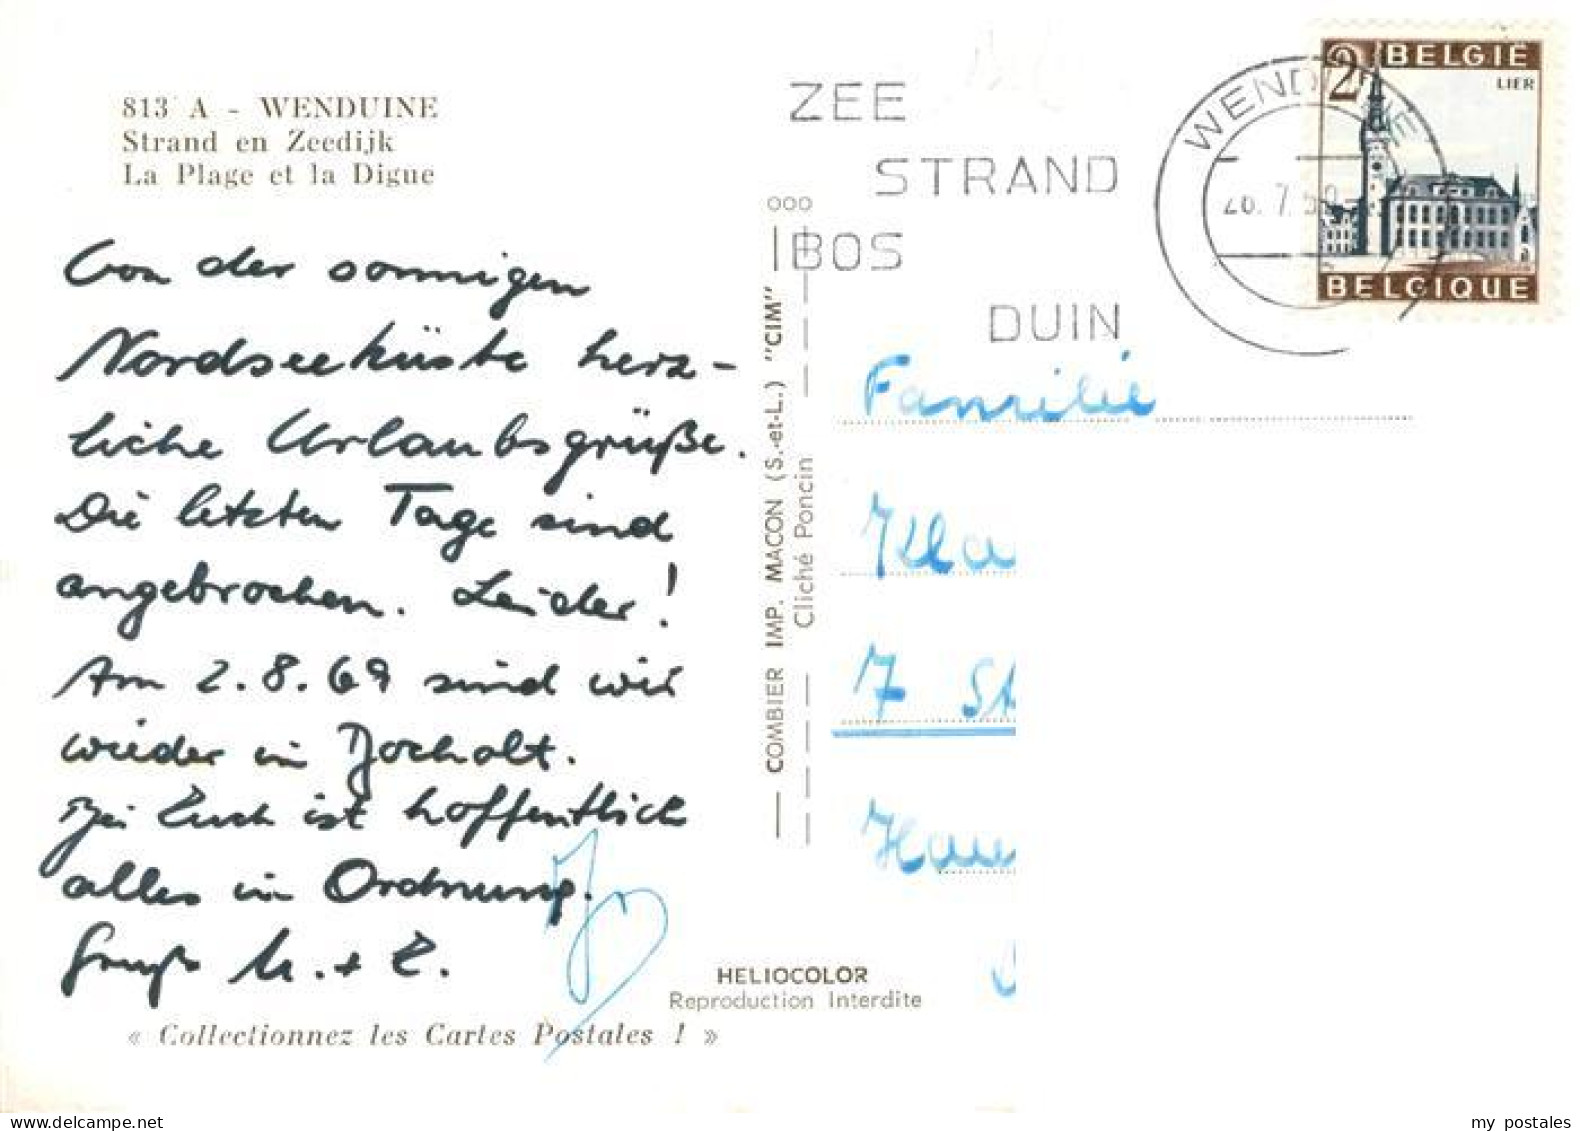 813 A - WENDUINE
Strand en Zeedijk
La Plage et la Digue
Von der sonnigen
Nordseeküste herz-
liche Urlaubsgrüße.
Die letzten Tage sind
angebrochen. Leider!
Am 2.8.69 sind wir
wieder in Bocholt.
Bei Euch ist hoffentlich
alles in Ordnung.
Gruß M. + E.
« Collectionnez les Cartes Postales ! »
COMBIER IMP. MACON (S.-et-L.) "CIM"
Cliché Poncin
HELIOCOLOR
Reproduction Interdite
ZEE
STRAND
BOS
DUIN
WENDUINE
2F BELGIË
LIER
BELGIQUE
Familie
Kla
7 St
Hau
my postales